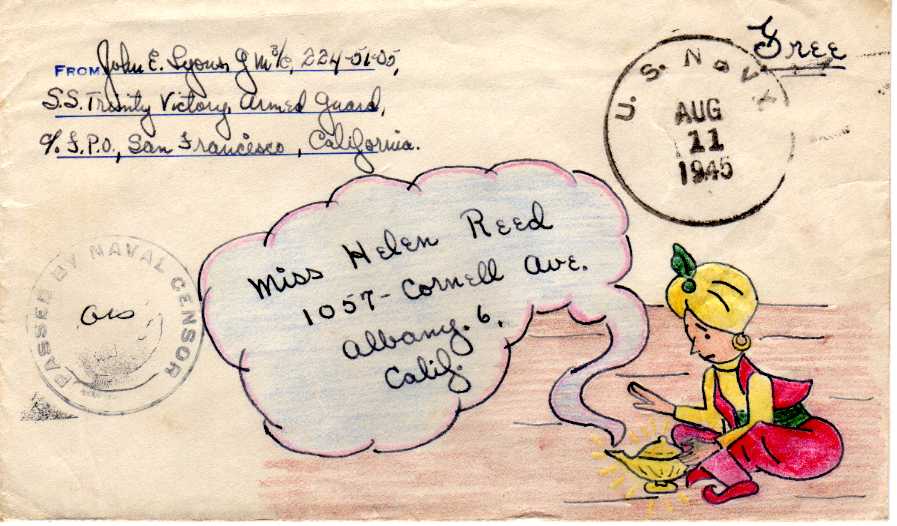 FROM John E. Lyons GM 3/c, 224-51-05,
S.S. Trinity Victory Armed Guard,
c/o F.P.O., San Francisco, California.
Free
U.S. NAVY
AUG
11
1945
PASSED BY NAVAL CENSOR
Miss Helen Reed
1057-Cornell Ave.
Albany. 6,
Calif.